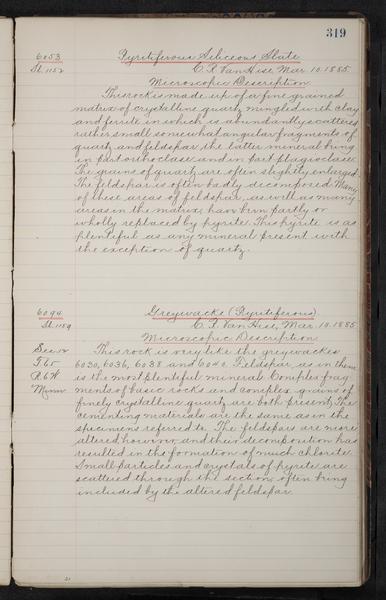 319
6053 Pyritiferous Siliceous Slate
Sl. 1152 C. R. Van Hise, Mar. 10. 1885.
Microscopic Description
This rock is made up of a fine grained
matrix of crystalline quartz mingled with clay
and ferrite in which is abundantly scattered
rather small somewhat angular fragments of
quartz and feldspar the latter mineral being
in part orthoclase and in part plagioclase.
The grains of quartz are often slightly enlarged.
The feldspar is often badly decomposed. Many
of these areas of feldspar, as well as many
areas in the matrix, have been partly or
wholly replaced by pyrite. This pyrite is as
plentiful as any mineral present with
the exception of quartz.
6094 Greywacke (Pyritiferous)
Sl. 1159 C. R. Van Hise, Mar. 10. 1885
Microscopic Description
Sec. 12 This rock is very like the greywackes
T 65 6030, 6036, 6038 and Feldspar as in them
R. 6 W is the most plentiful mineral. Complex frag
Minn ments of basic rocks and complex grains of
finely crystalline quartz are both present. The
cementing materials are the same as in the
specimens referred to. The feldspars are more
altered, however, and their decomposition has
resulted in the formation of much chlorite.
Small particles and crystals of pyrite are
scattered through the section, often being
included by the altered feldspar.